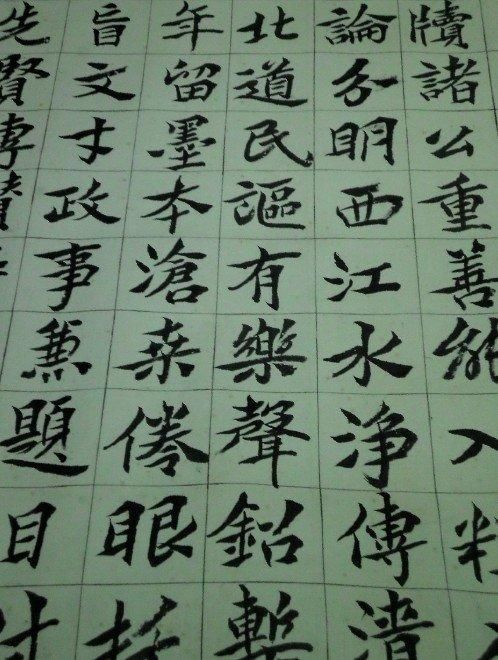 牘諸公重善能入精
論分明西江水淨傳清
北道民謳有樂聲鉛槧
年留墨本滄桒倦眼
旨文才政事兼題目
先賢傳